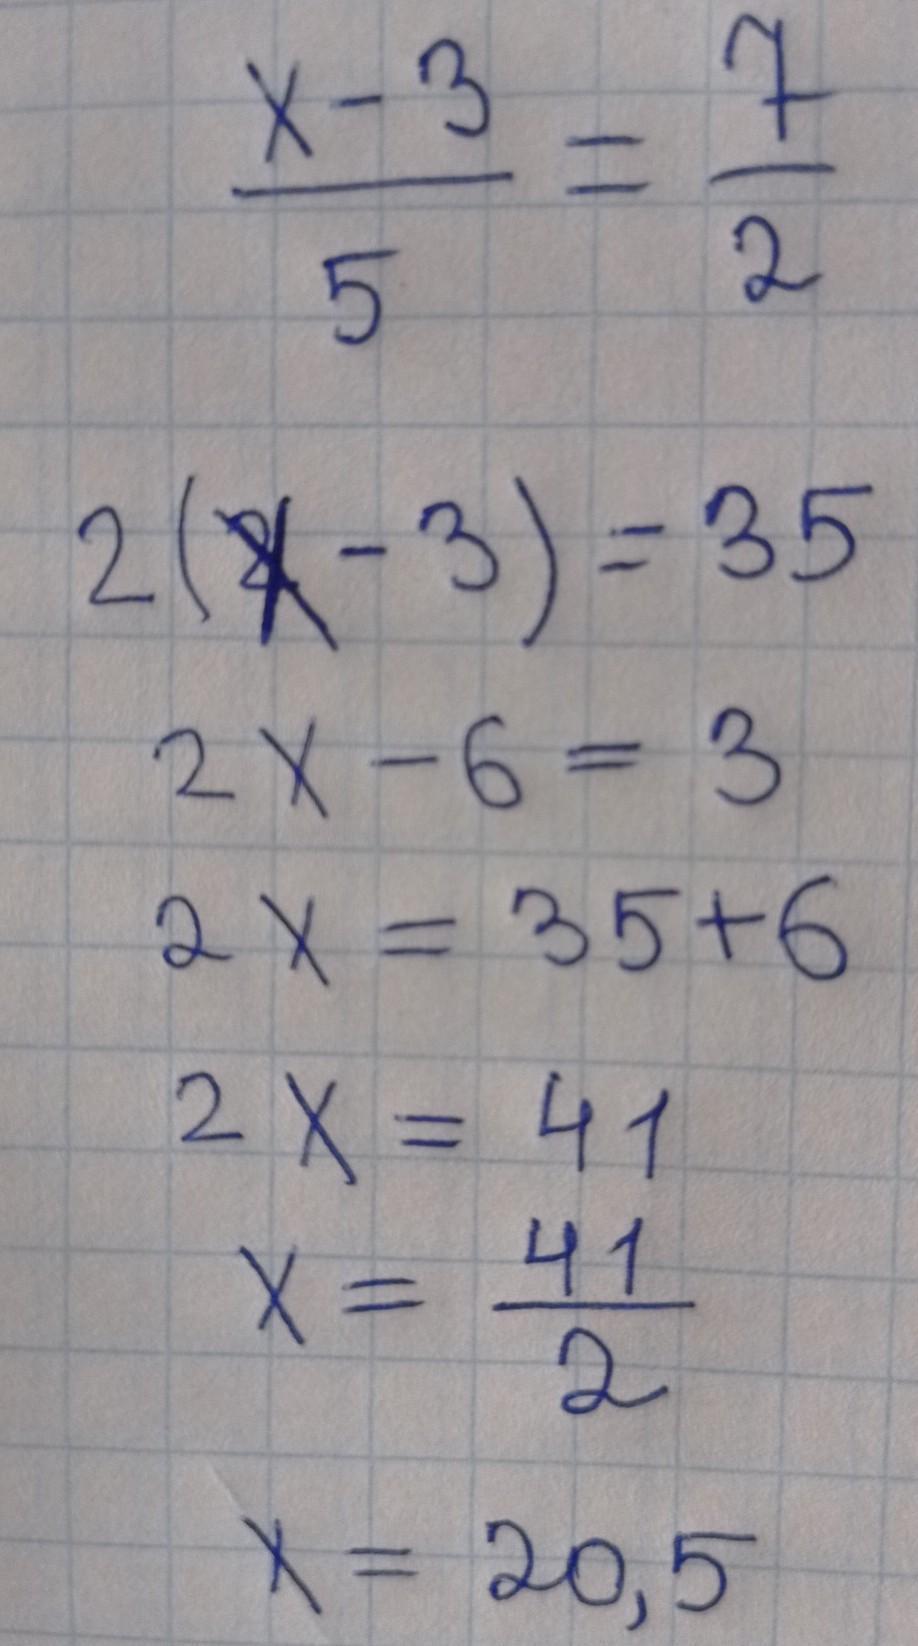 x - 3 / 5 = 7 / 2
2(x - 3) = 35
2x - 6 = 3
2x = 35 + 6
2x = 41
x = 41 / 2
x = 20,5